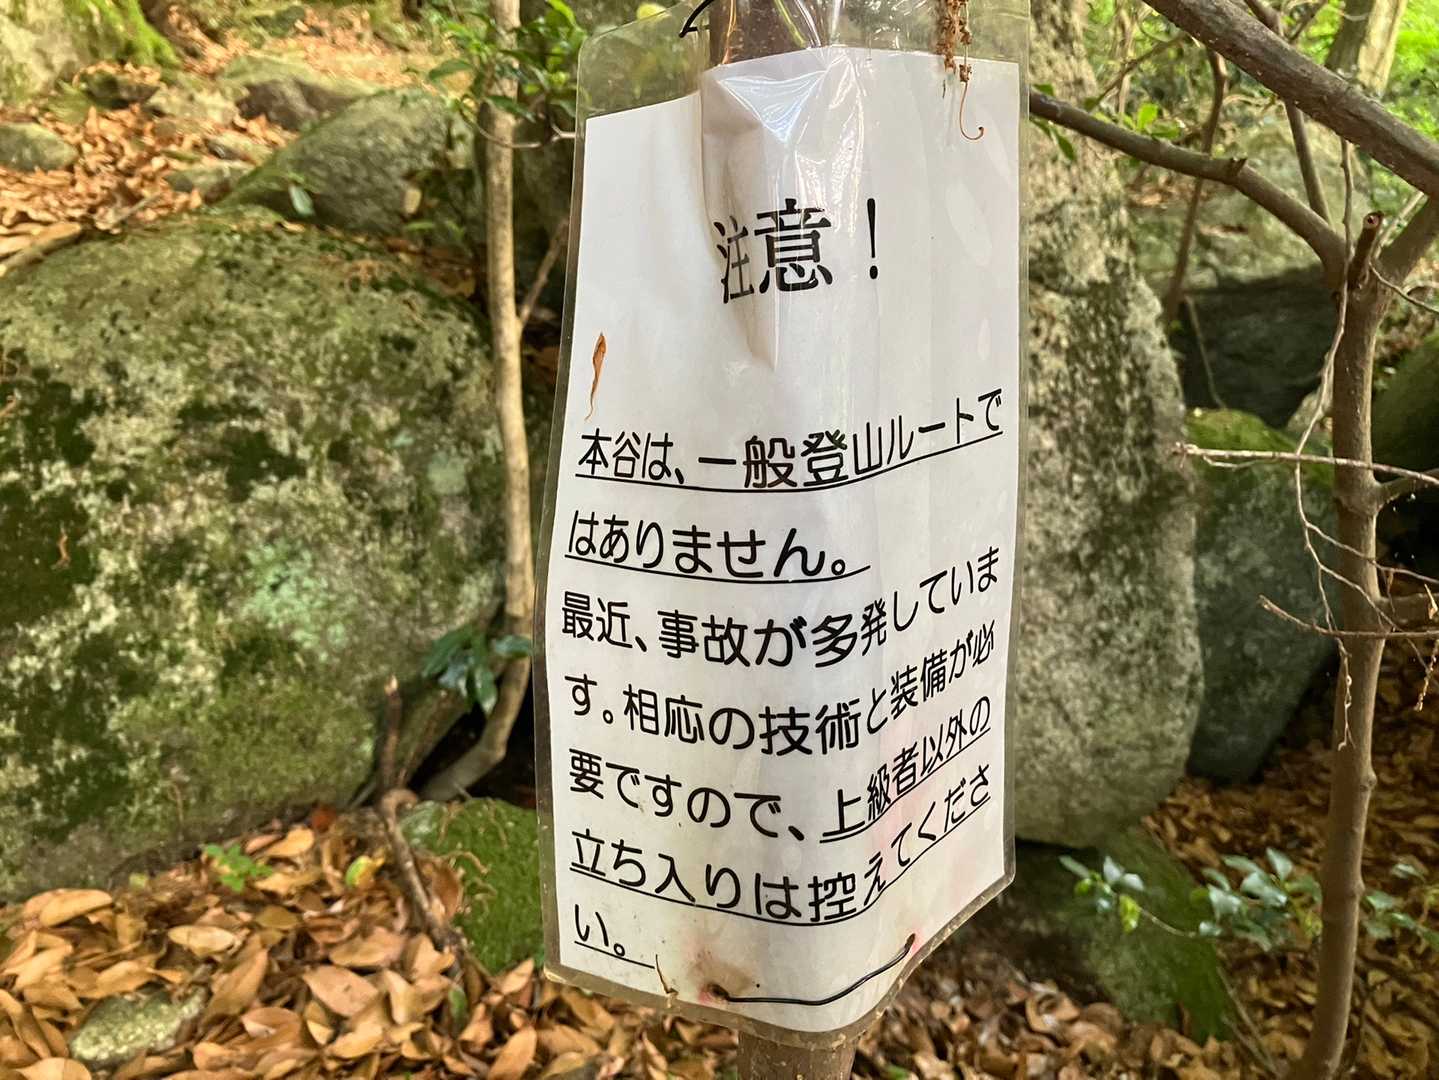 注意！
本谷は、一般登山ルートで
はありません。
最近、事故が多発していま
す。相応の技術と装備が必
要ですので、上級者以外の
立ち入りは控えてくださ
い。